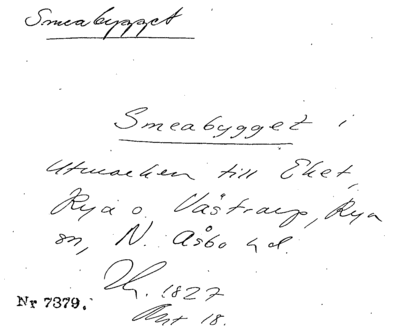 Smeabygget
Smeabygget i
utmarken till Eket,
Rya o. Västrarp, Rya
sn, N. Åsbo hd.
1827
Akt 18.
Nr 7379.